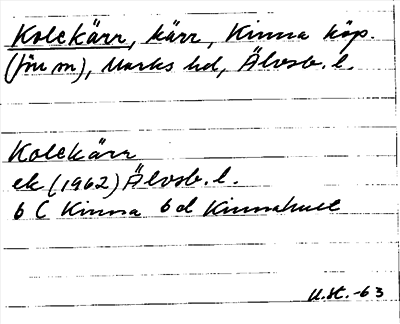 Kolekärr, kärr, Kinna köp.
(jfr m), Marks hd, Älvsb. l.
Kolekärr
ek (1962) Älvsb. l.
6 C Kinna 6 d Kinnahult
U.St. -63